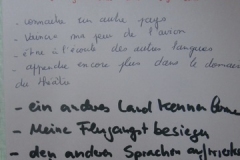 - connaître un autre pays
- vaincre ma peur de l'avion
- être à l'écoute des autres langues
- apprendre encore plus dans le domaine
du théâtre
- ein anderes Land kennen
- Meine Flugangst besiegen
- den anderen Sprachen